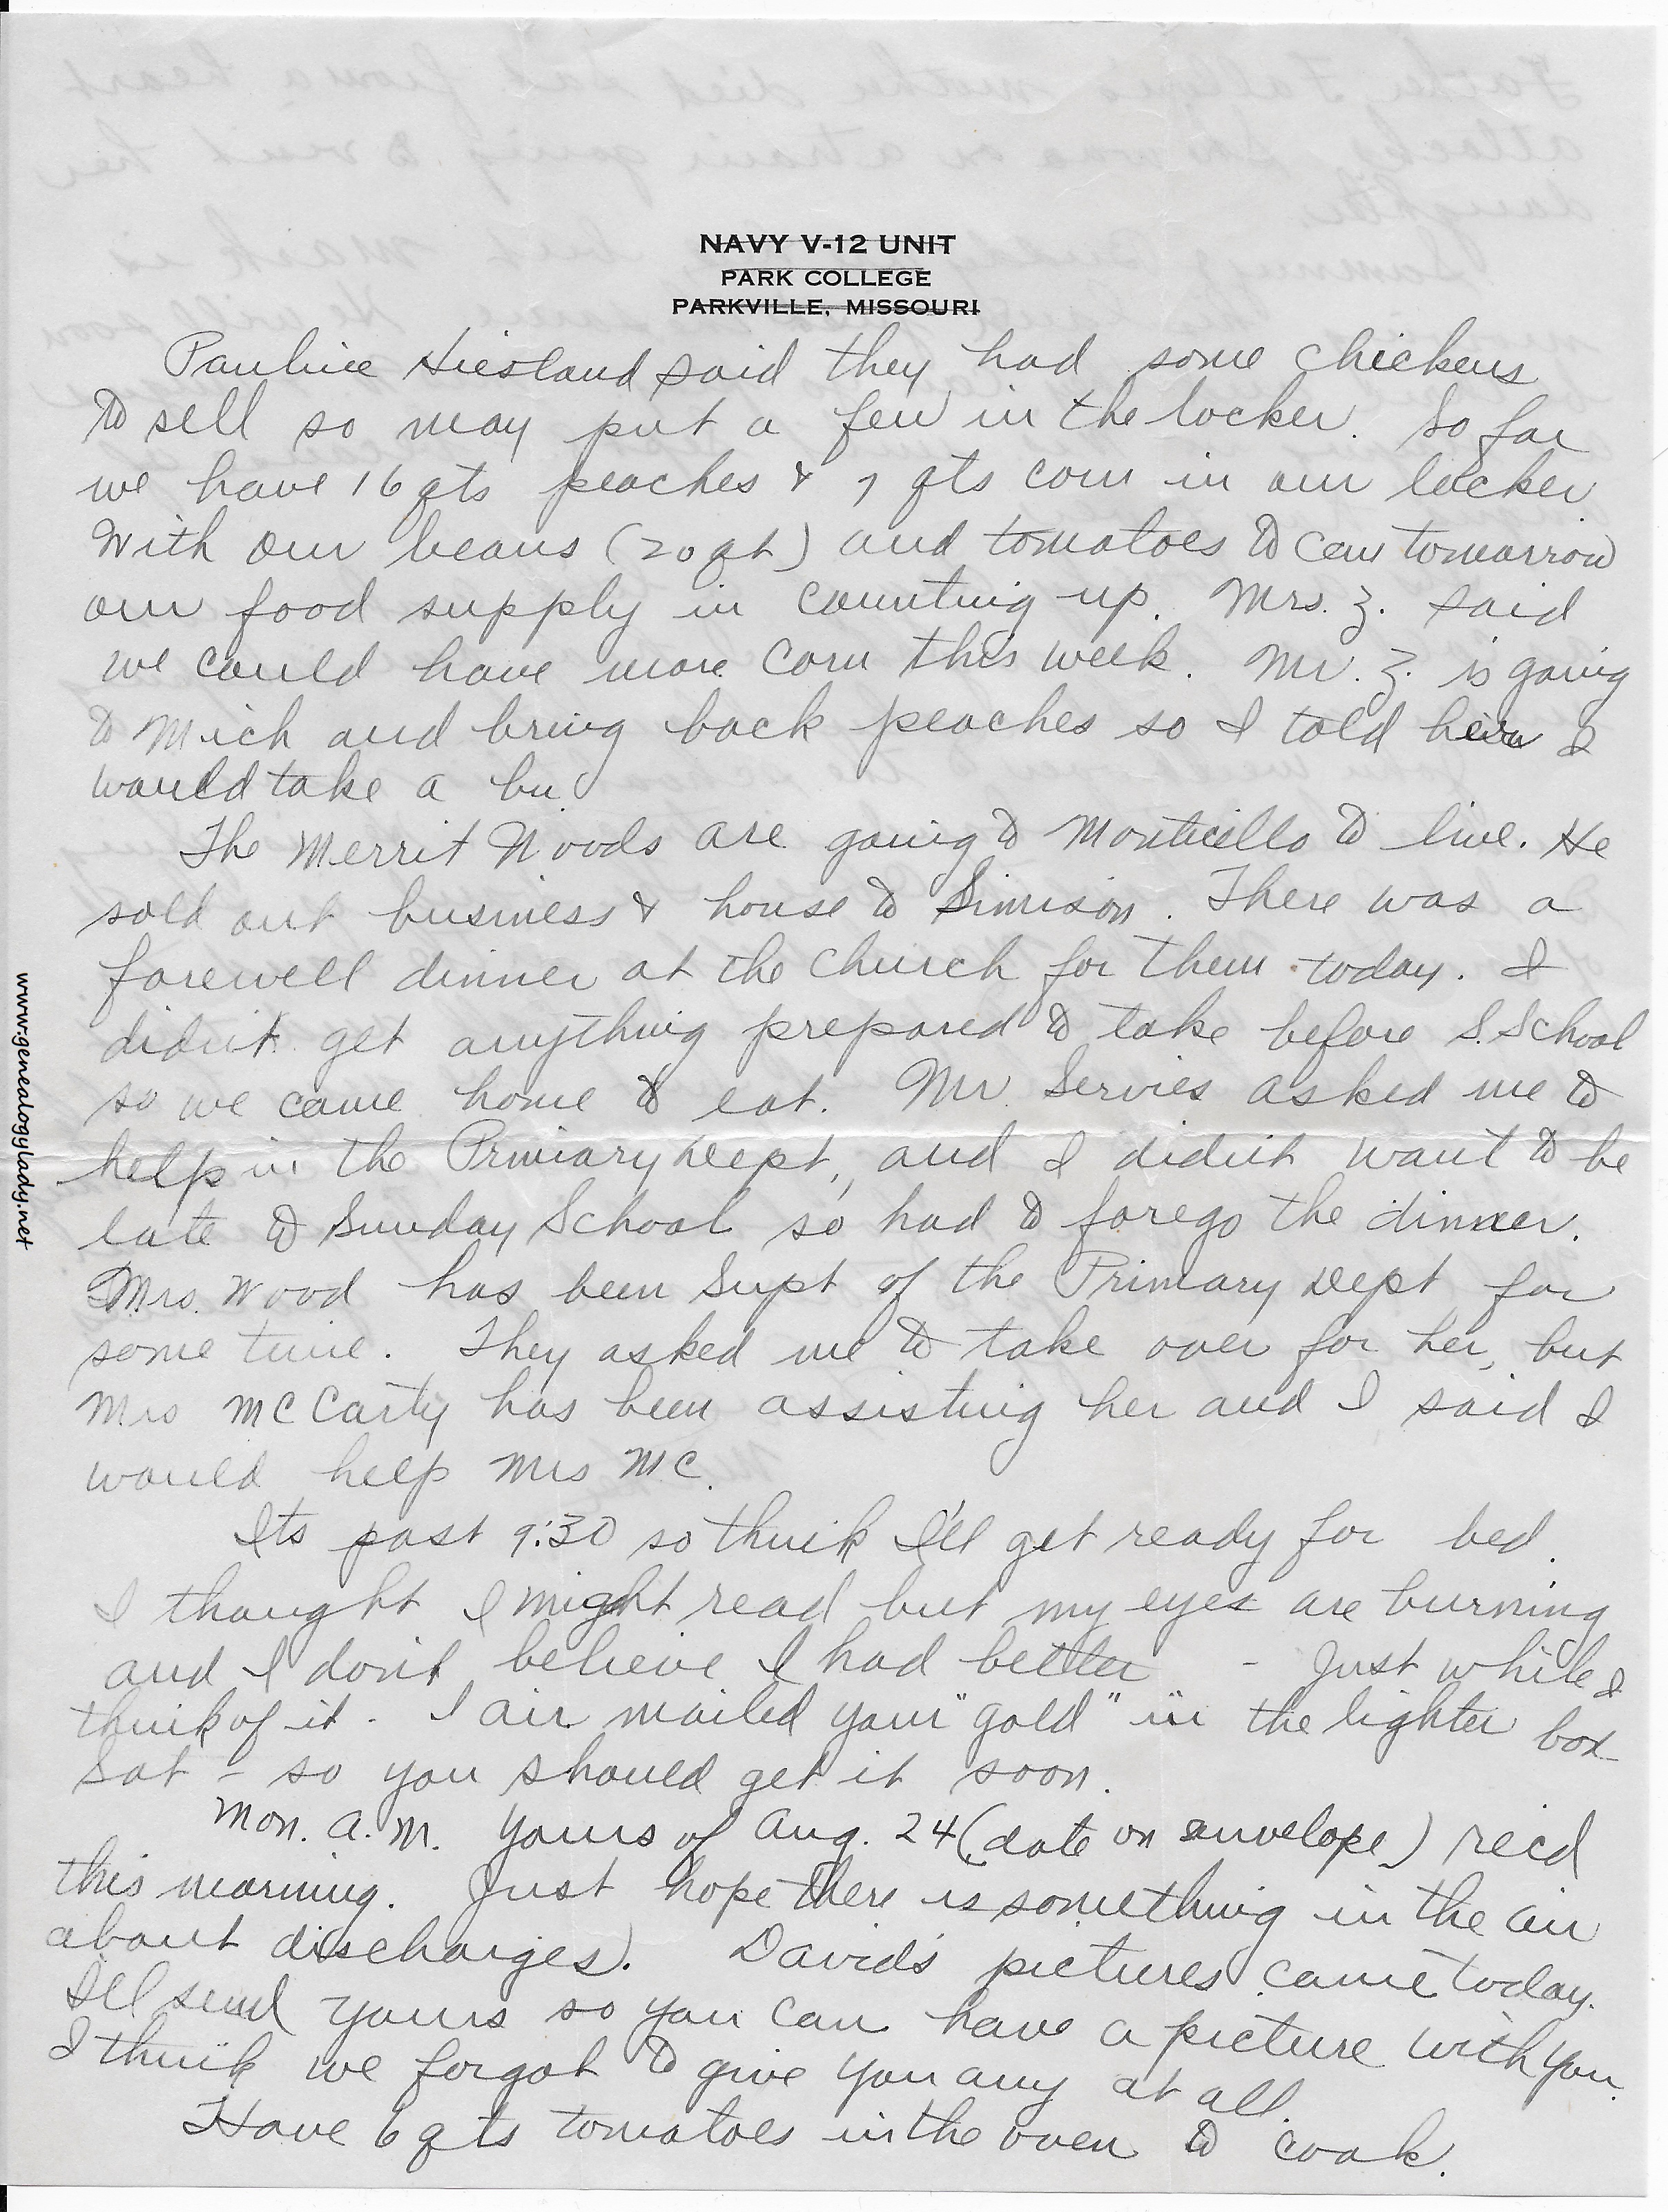 NAVY V-12 UNIT
PARK COLLEGE
PARKVILLE, MISSOURI
Pauline Hiesland said they had some chickens
to sell so may put a few in the locker. So far
we have 16 qts peaches & 7 qts corn in our locker
With our beans (20 qt) and tomatoes to can tomorrow
our food supply in counting up. Mrs. Z. said
we could have more corn this week. Mr. Z. is going
to Mich and bring back peaches so I told him I
would take a bu.
The Merrit Woods are going to Monticello to live. He
sold out business & house to Simison. There was a
farewell dinner at the church for them today. I
didn't get anything prepared to take before S. School
so we came home to eat. Mr Servies asked me to
help in the Primary Dept, and I didn't want to be
late to Sunday School so had to forego the dinner.
Mrs. Wood has been Supt of the Primary Dept for
some time. They asked me to take over for her, but
Mrs McCarty has been assisting her and I said I
would help Mrs Mc.
Its past 9:30 so think I'll get ready for bed.
I thought I might read but my eyes are burning
and I don't believe I had better - Just while I
think of it. I air mailed your "gold" in the lighter box
Sat - so you should get it soon.
Mon. A.M. Yours of Aug. 24 (date on envelope) rec'd
this morning. Just hope there is something in the air
about discharges). David's pictures came today.
I'll send yours so you can have a picture with you.
I think we forgot to give you any at all.
Have 6 qts tomatoes in the oven to cook.
www.genealogylady.net